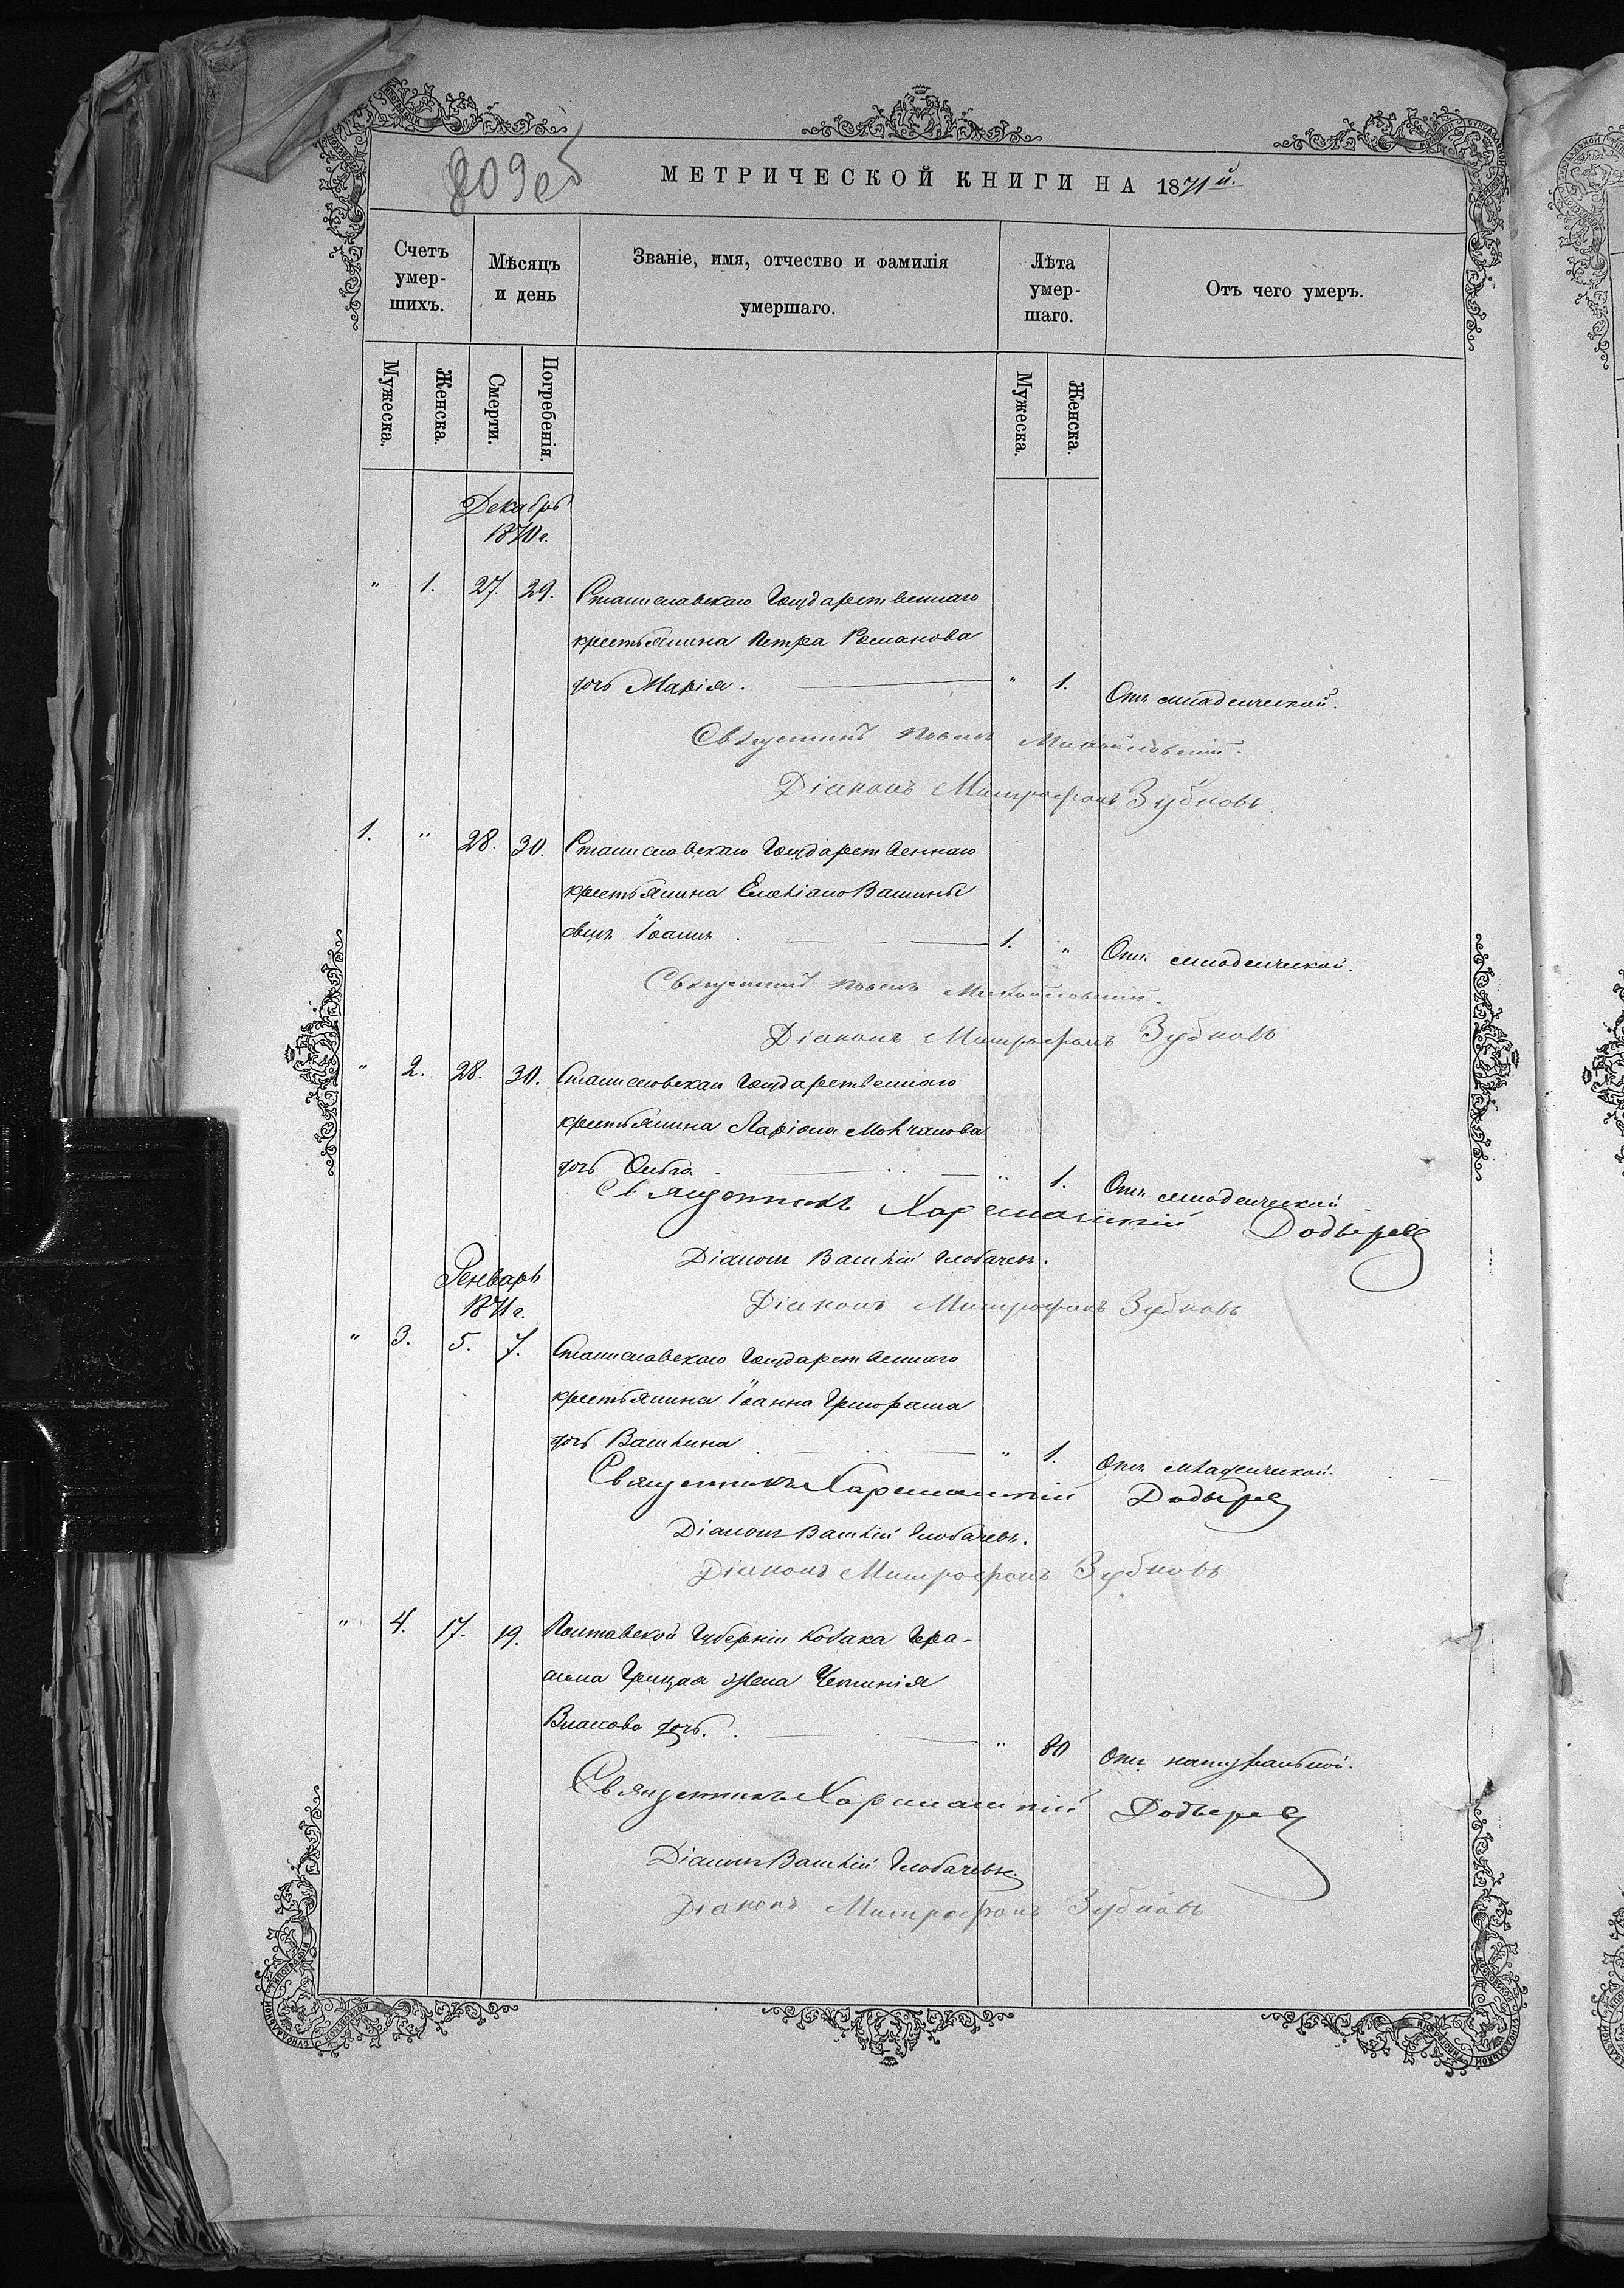 809об
МЕТРИЧЕСКОЙ КНИГИ НА 1871й.
Счетъ умер-шихъ.
Мѣсяцъ и день
Званіе, имя, отчество и фамилія умершаго.
Лѣта умер-шаго.
Отъ чего умеръ.
Мужеска.
Женска.
Смерти.
Погребенія.
Мужеска.
Женска.
Декабрь
1870 г.
" 1. 27. 29. Станиславскаго Государственнаго
крестьянина Петра Романова
дочь Марія. " 1. Отъ младенческой.
Священникъ
Діаконъ Митрофанъ Зубковъ
1. " 28. 30. Станиславскаго Государственнаго
крестьянина
сынъ Іоаннъ. 1. " Отъ младенческой.
Священникъ
Діаконъ Митрофанъ Зубковъ
" 2. 28. 30. Станиславскаго Государственнаго
крестьянина Ларіона Молчанова
дочь Ольга. " 1. Отъ младенческой
Священникъ Харлампій
Діаконъ Василій Глобачевъ.
Генварь
1871 г.
Діаконъ Митрофанъ Зубковъ
" 3. 5. 7. Станиславскаго Государственнаго
крестьянина Іоанна Григораша
дочь Василина. " 1. Отъ младенческой.
Священникъ Харлампій
Діаконъ Василій Глобачевъ.
Діаконъ Митрофанъ Зубковъ
" 4. 17. 19. Полтавской Губерніи Козака Гера-
сима Грицая жена
Власова дочь. " 80 Отъ натуральной.
Священникъ Харлампій
Діаконъ Василій Глобачевъ.
Діаконъ Митрофанъ Зубковъ